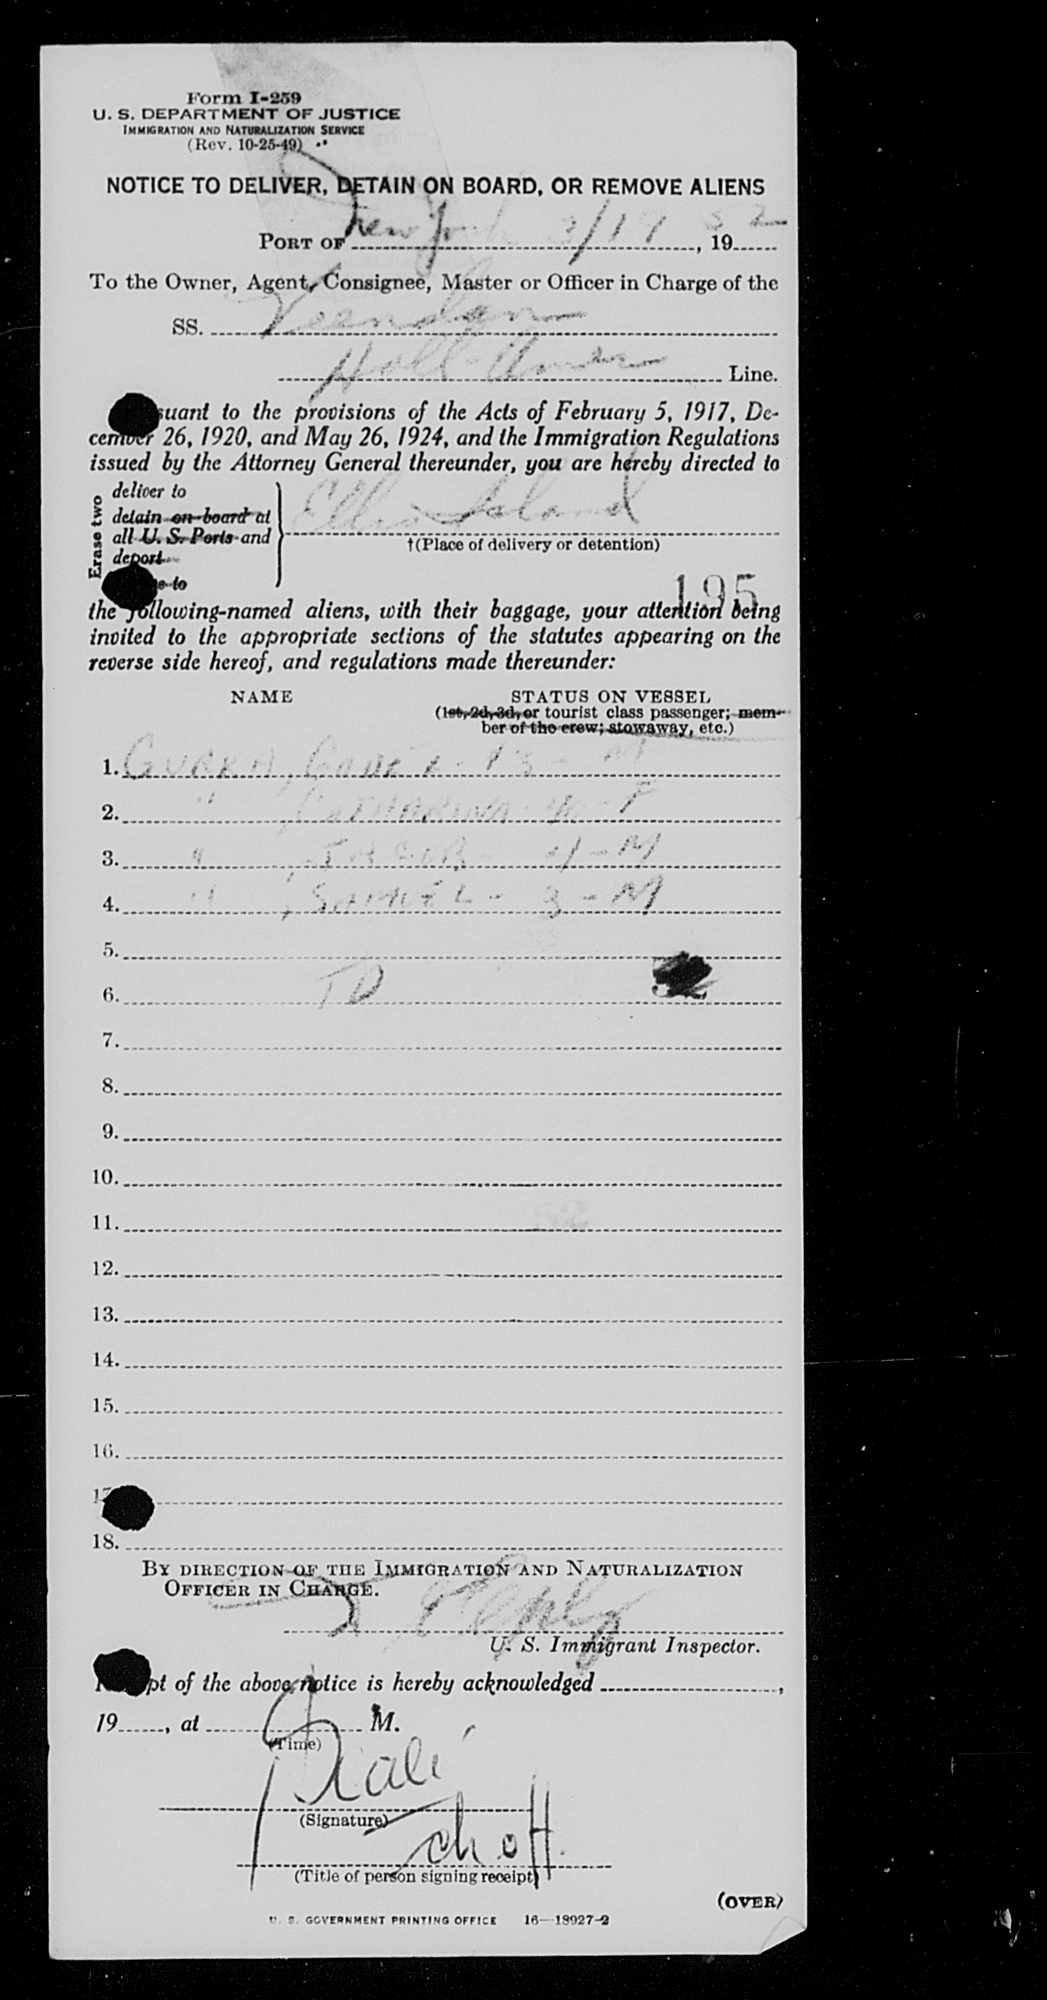 Form I-259
U. S. DEPARTMENT OF JUSTICE
IMMIGRATION AND NATURALIZATION SERVICE
(Rev. 10-25-49)
NOTICE TO DELIVER, DETAIN ON BOARD, OR REMOVE ALIENS
PORT OF New York 3/17, 1952
To the Owner, Agent, Consignee, Master or Officer in Charge of the
SS. Veendam
Holl-Amer Line.
suant to the provisions of the Acts of February 5, 1917, De-
cember 26, 1920, and May 26, 1924, and the Immigration Regulations
issued by the Attorney General thereunder, you are hereby directed to
Erase two
deliver to
detain on board at
all U. S. Ports and
deport
to
Ellis Island
†(Place of delivery or detention)
195
the following-named aliens, with their baggage, your attention being
invited to the appropriate sections of the statutes appearing on the
reverse side hereof, and regulations made thereunder:
NAME STATUS ON VESSEL
(1st, 2d, 3d, or tourist class passenger; mem-
ber of the crew; stowaway, etc.)
1. M
2. " F
3. " - M
4. " , SAMUEL - 3 - M
5.
6. TD
7.
8.
9.
10.
11.
12.
13.
14.
15.
16.
17
18.
BY DIRECTION OF THE IMMIGRATION AND NATURALIZATION
OFFICER IN CHARGE.
U. S. Immigrant Inspector.
pt of the above notice is hereby acknowledged ,
19 , at M.
(Time)
(Signature)
(Title of person signing receipt)
(OVER)
U. S. GOVERNMENT PRINTING OFFICE 16—18927-2